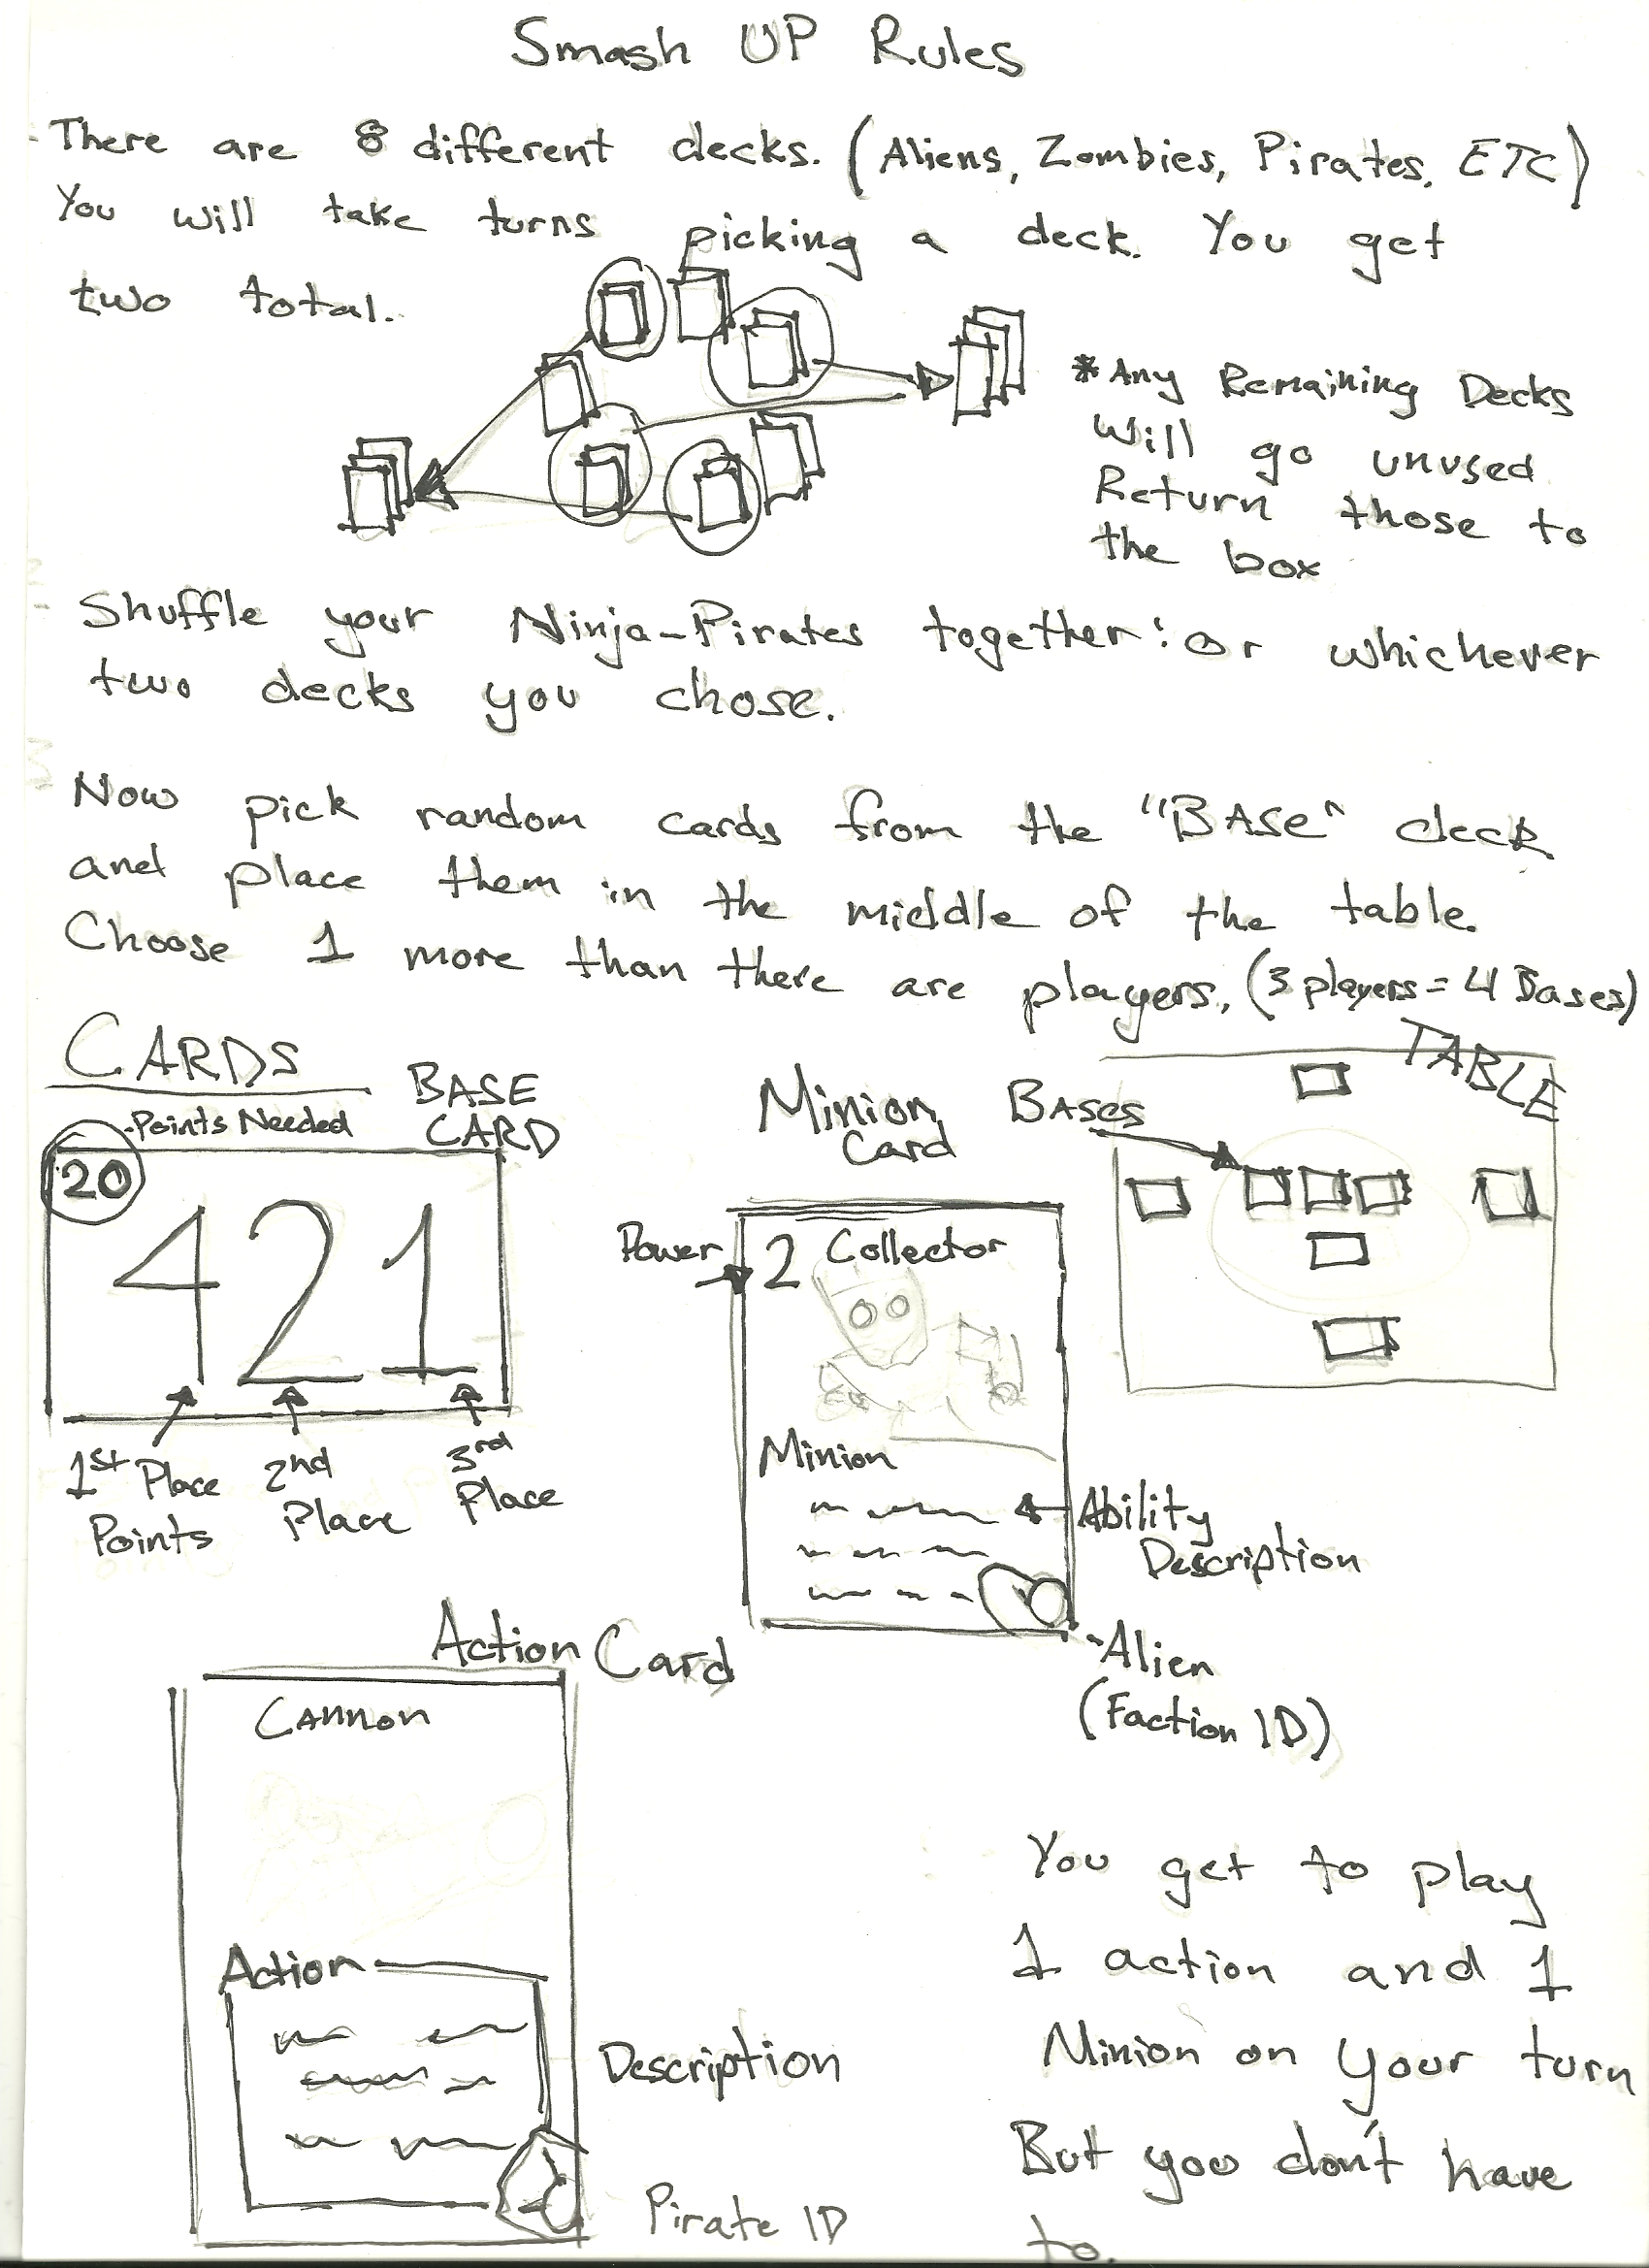 Smash UP Rules
- There are 8 different decks. (Aliens, Zombies, Pirates, ETC)
You will take turns picking a deck. You get
two total.
*Any Remaining Decks
will go unused
Return those to
the box
- Shuffle your Ninja-Pirates together! or whichever
two decks you chose.
Now pick random cards from the "BASE" deck
and place them in the middle of the table.
Choose 1 more than there are players, (3 players = 4 Bases)
CARDS
BASE
CARD
-Points Needed
20
4 2 1
1st Place
Points
2nd
Place
3rd
Place
Minion
Card
Power
2 Collector
Minion
Ability
Description
-Alien
(Faction ID)
Bases
TABLE
Action Card
Cannon
Action
Description
Pirate ID
You get to play
1 action and 1
Minion on your turn
But you don't have
to.